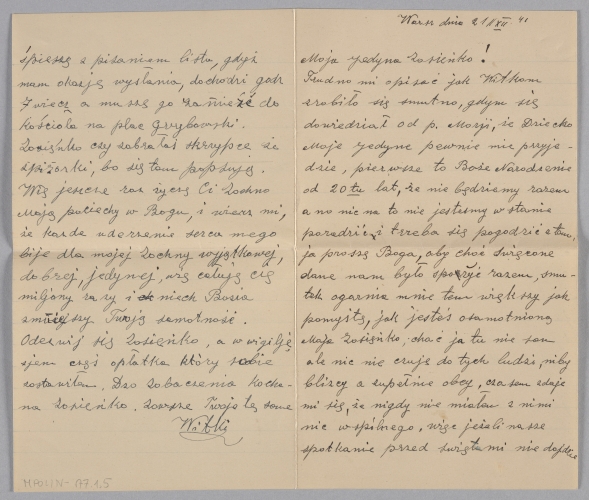 Warsz dnia 21/XII. 41
Moja jedyna Zosieńko!
Trudno mi opisać jak Witkowi
zrobiło się smutno, gdym się
dowiedział od p. Marji, że Dziecko
Moje jedyne pewnie nie przyje-
dzie, pierwsze to Boże Narodzenie
od 20tu lat, że nie będziemy razem
a no nic na to nie jesteśmy w stanie
poradzić i trzeba się pogodzić z tem,
ja proszę Boga, aby choć święcone
dane nam było spożyć razem, smu-
tek ogarnia mnie tem większy jak
pomyślę, jak jesteś osamotnioną
Moja Zosieńko, choć ja tu nie sam
ale nic nie czuję do tych ludzi, niby
bliscy a zupełnie obcy, czasem zdaje
mi się, że nigdy nie miałem z nimi
nic wspólnego, więc jeżeli nasze
spotkanie przed świętami nie dojdzie
śpieszę z pisaniem listu, gdyż
mam okazję wysłania, dochodzi godz
7 wiecz a muszę go zanieść do
kościoła na plac Grzybowski.
Zosieńko czy zabrałaś skrzypce ze
spiżarki, bo się tam popsują.
Więc jeszcze raz życzę Ci Zochno
Moja pociechy w Bogu, i wierz mi,
że każde uderzenie serca mego
bije dla mojej Zochny wyjątkowej,
dobrej, jedynej, więc całuję cię
miljony razy i niech Bozia
zmniejszy Twoją samotność.
Odezwij się Zosieńko, a w wigilję
zjem część opłatka który sobie
zostawiłem. Do Zobaczenia kocha-
na Zosieńko. Zawsze Twój ten sam
Witek